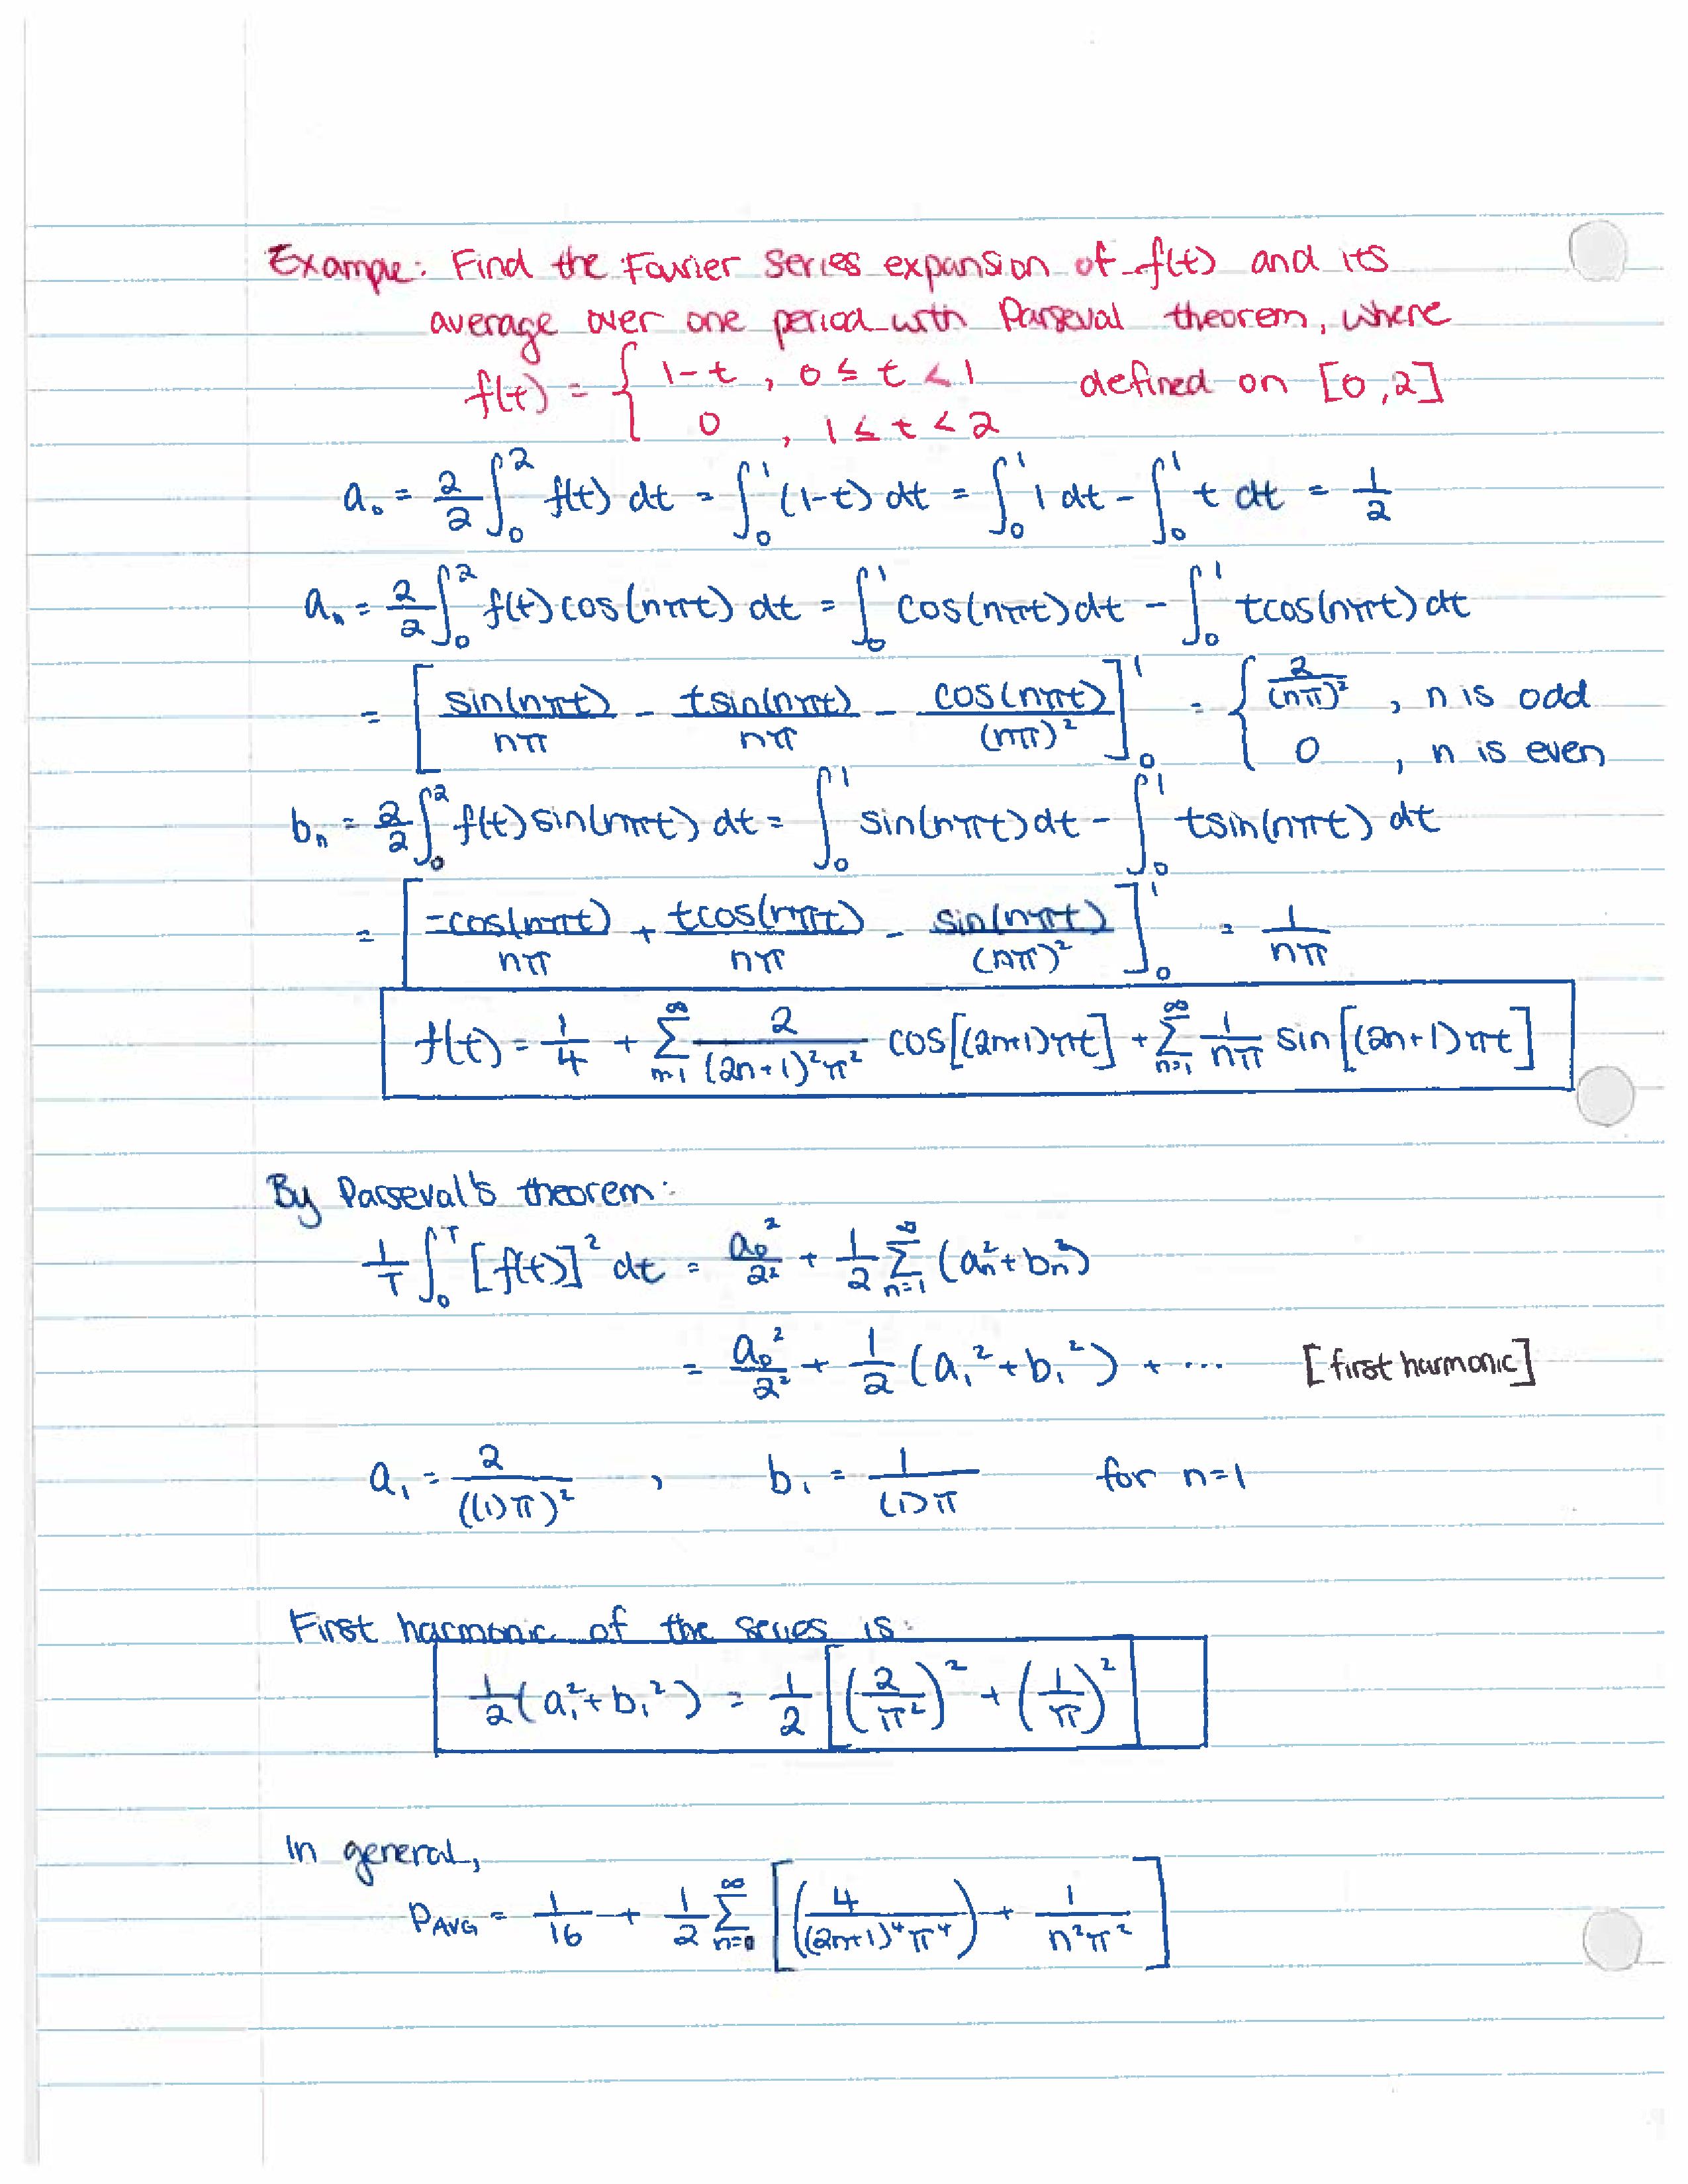 Example: Find the Fourier Series expansion of f(t) and its
average over one period with Parseval theorem, where
f(t) = { 1-t , 0 ≤ t < 1 defined on [0,2]
0 , 1 ≤ t < 2
a₀ = 2/2 ∫₀² f(t) dt = ∫₀¹ (1-t) dt = ∫₀¹ 1 dt - ∫₀¹ t dt = 1/2
aₙ = 2/2 ∫₀² f(t) cos(nπt) dt = ∫₀¹ cos(nπt) dt - ∫₀¹ tcos(nπt) dt
= [ sin(nπt)/nπ - tsin(nπt)/nπ - cos(nπt)/(nπ)² ]₀¹ = { 2/(nπ)² , n is odd
0 , n is even
bₙ = 2/2 ∫₀² f(t) sin(nπt) dt = ∫₀¹ sin(nπt) dt - ∫₀¹ tsin(nπt) dt
= [ -cos(nπt)/nπ + tcos(nπt)/nπ - sin(nπt)/(nπ)² ]₀¹ = 1/nπ
f(t) = 1/4 + ∞Σn=1 2/(2n+1)²π² cos[(2n+1)πt] + ∞Σn=1 1/nπ sin[(2n+1)πt]
By Parseval's theorem:
1/T ∫₀ᵀ [f(t)]² dt = a₀²/2² + 1/2 ∞Σn=1 (aₙ² + bₙ²)
= a₀²/2² + 1/2 (a₁² + b₁²) + ... [first harmonic]
a₁ = 2/((1)π)² , b₁ = 1/(1)π for n=1
First harmonic of the series is:
1/2 (a₁² + b₁²) = 1/2 [(2/π²)² + (1/π)²]
In general,
PAVG = 1/16 + 1/2 ∞Σn=0 [(4/((2n+1)⁴π⁴) + 1/n²π²]